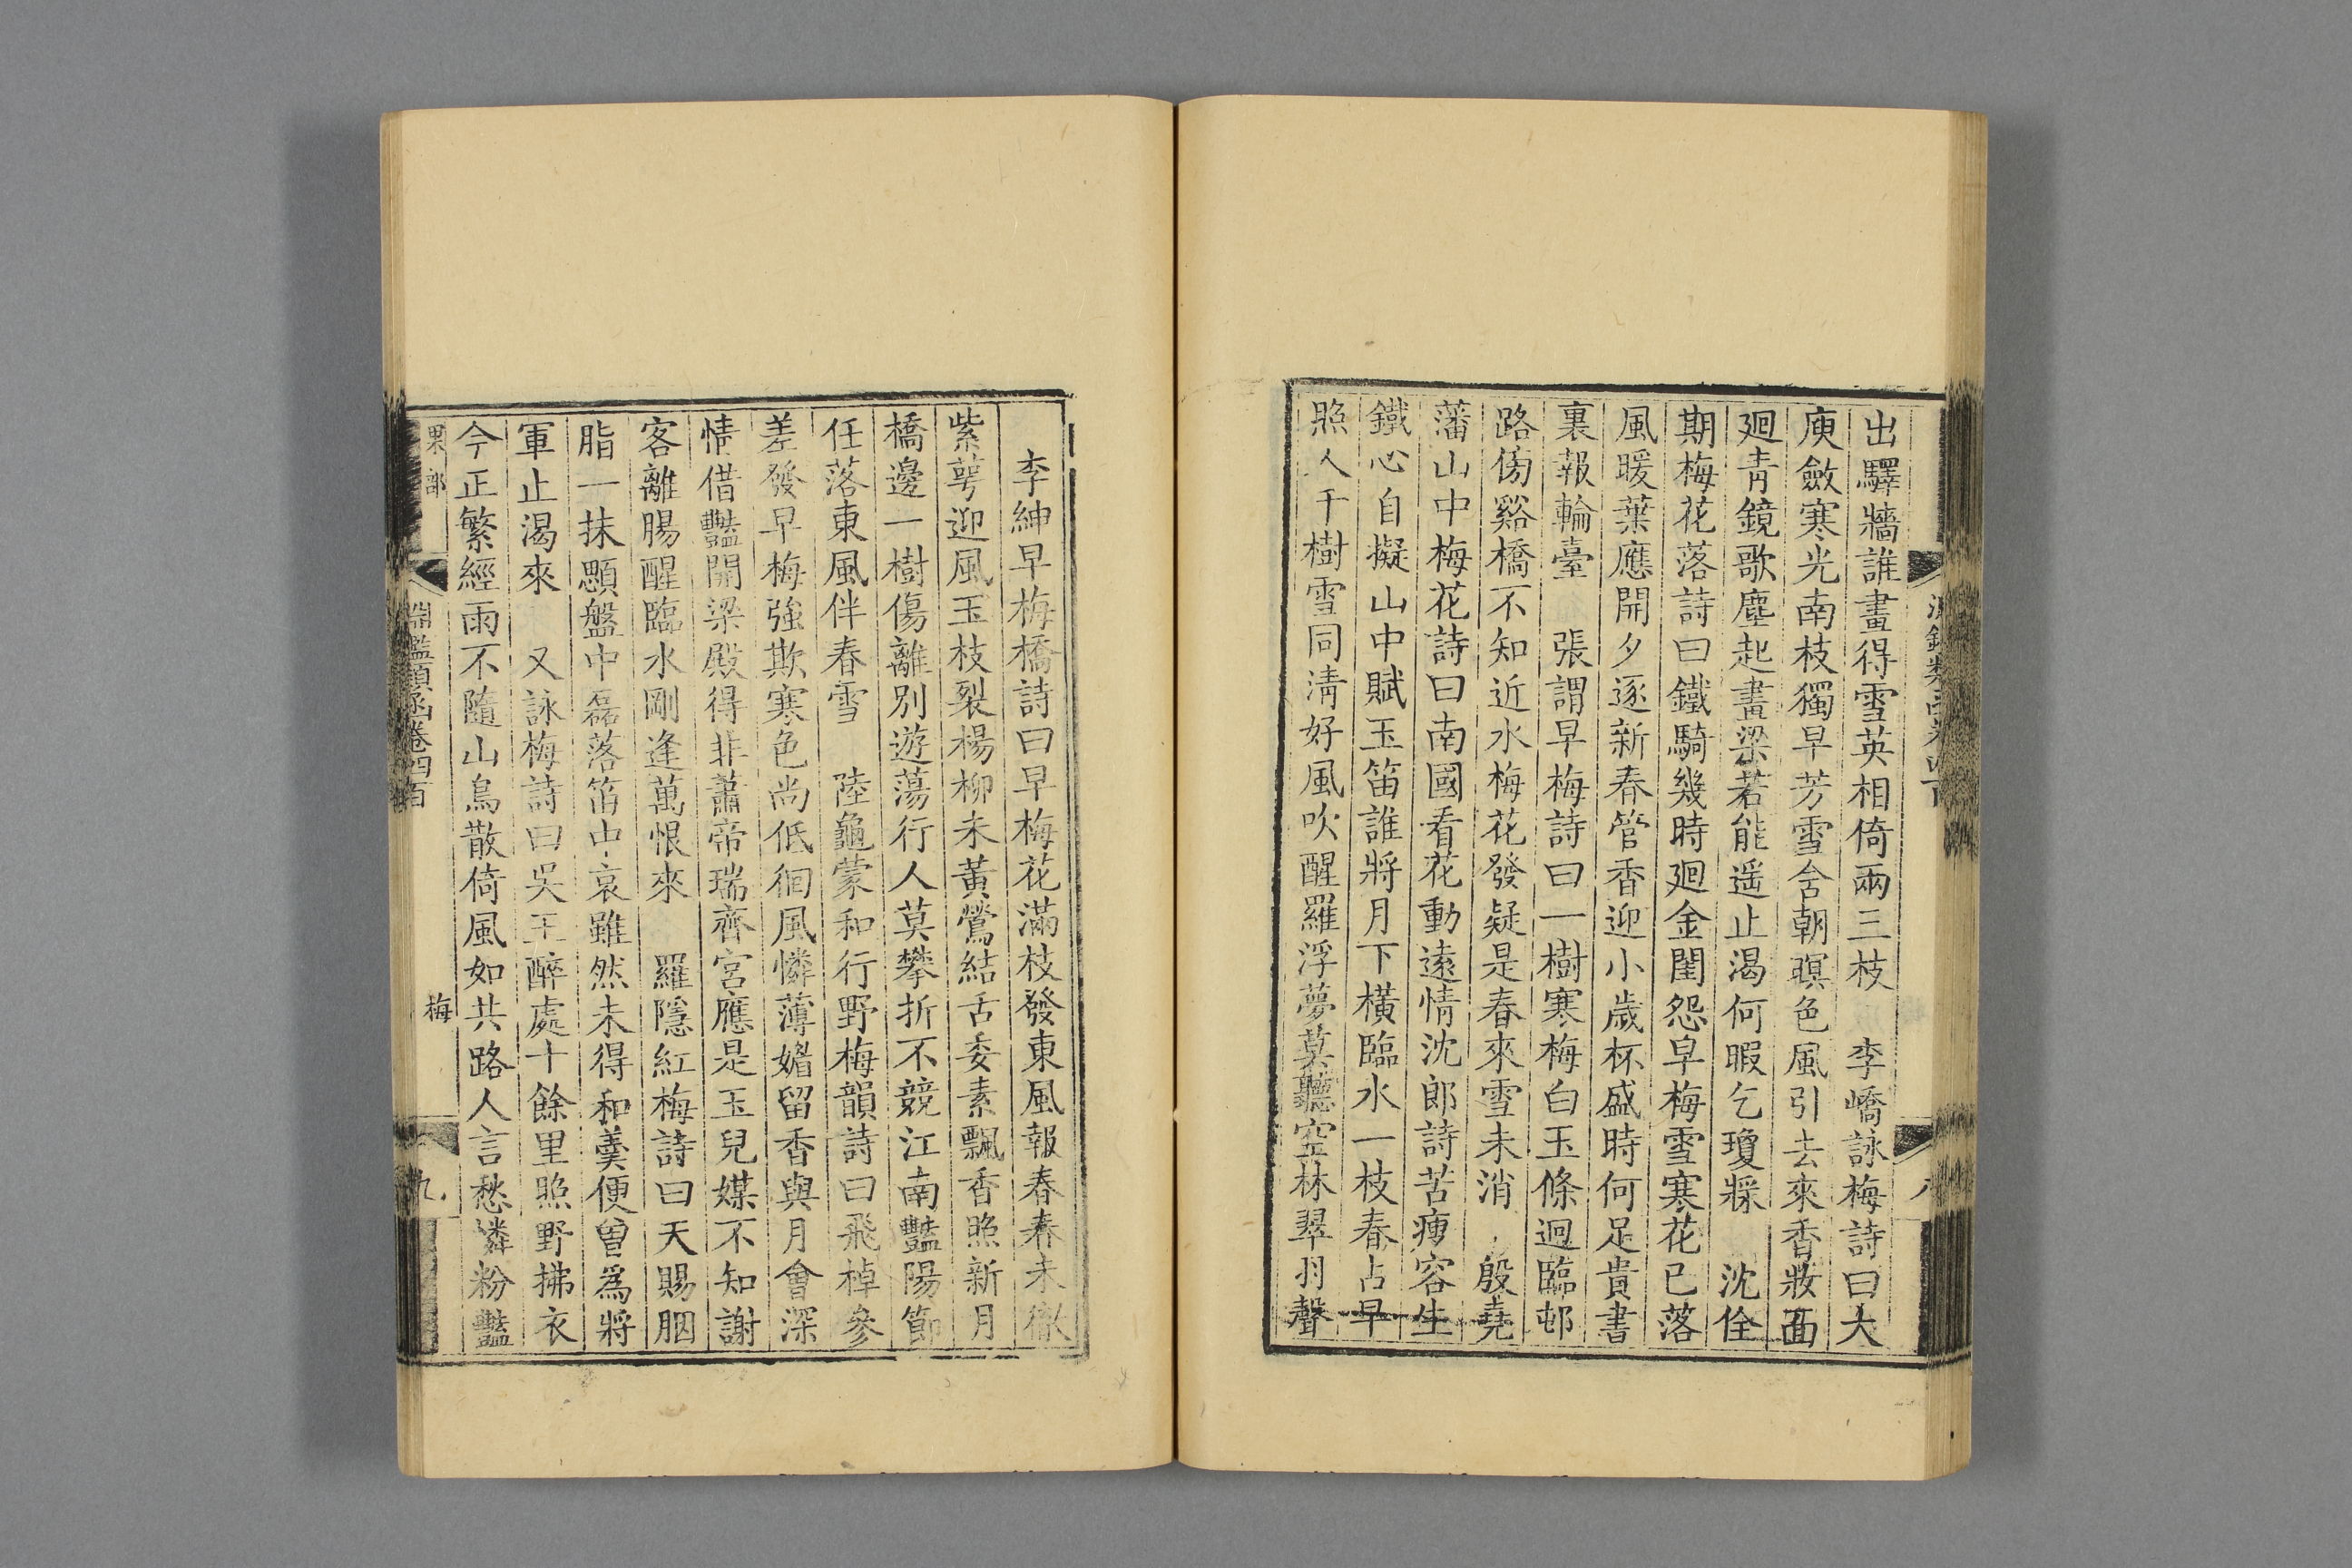 出驛牆誰畫得雪英相倚兩三枝 李嶠詠梅詩曰大
庾斂寒光南枝獨早芳雪含朝暝色風引去來香妝面
廻青鏡歌塵起畫梁若能遙止渴何暇乞瓊𥽊 沈佺
期梅花落詩曰鐵騎幾時廻金閨怨早梅雪寒花已落
風暖葉應開夕逐新春管香迎小歲杯盛時何足貴書
裏報輪臺 張謂早梅詩曰一樹寒梅白玉條迥臨邨
路傍谿橋不知近水梅花發疑是春來雪未消 殷堯
藩山中梅花詩曰南國看花動遠情沈郎詩苦瘦容生
鐵心自擬山中賦玉笛誰將月下橫臨水一枝春占早
照人千樹雪同淸好風吹醒羅浮夢莫聽空林翠羽聲
李紳早梅橋詩曰早梅花滿枝發東風報春春未徹
紫萼迎風玉枝裂楊柳未黃鶯結舌委素飄香照新月
橋邊一樹傷離別遊蕩行人莫攀折不競江南豔陽節
任落東風伴春雪 陸龜蒙和行野梅韻詩曰飛棹參
差發早梅強欺寒色尚低徊風憐薄媚留香與月會深
情借豔開梁殿得非蕭帝瑞齊宮應是玉兒媒不知謝
客離腸醒臨水剛逢萬恨來 羅隱紅梅詩曰天賜胭
脂一抹顋盤中磊落笛中哀雖然未得和羹便曾爲將
軍止渴來 又詠梅詩曰吳王醉處十餘里照野拂衣
今正繁經雨不隨山鳥散倚風如共路人言愁憐粉豔
果部
淵鑑類函卷四百
梅
九